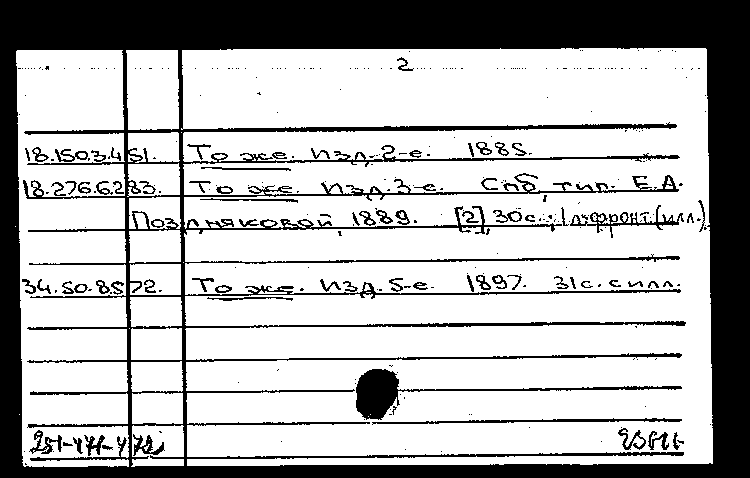 2
18.150.3.451. То же. Изд. 2-е. 1885.
18.276.6.283. То же. Изд. 3-е. Спб, тип. Е.А.
Поздняковой, 1889. [2], 30 с.; 1 л. фронт. (илл.)
34.50.8.572. То же. Изд. 5-е. 1897. 31 с. с илл.